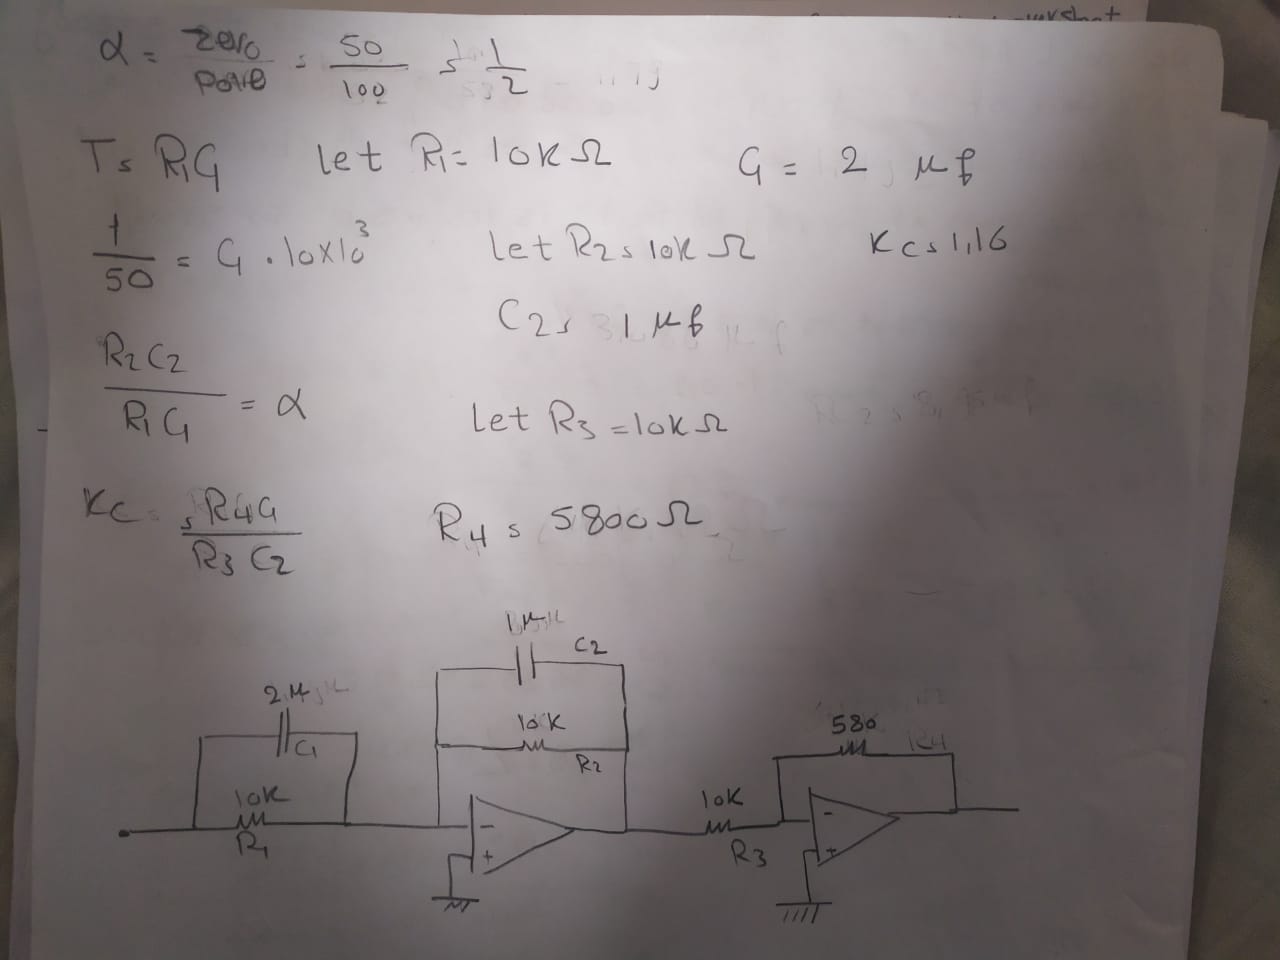 α = zero/pole s 50/100 s 1/2
Ts R1C1 let R1 = 10KΩ C1 = 2 μf
1/50 = C1 . 10x10^3 let R2 s 10K Ω Kc s 1,16
C2 s 1 μf
R2 C2/R1 C1 = α Let R3 = 10KΩ
Kc s R4C1/R3 C2 R4 s 5800Ω
1μ
C2
2μ
10K
580
C1
R2
R4
10K
10K
R1
R3
-
+
-
+